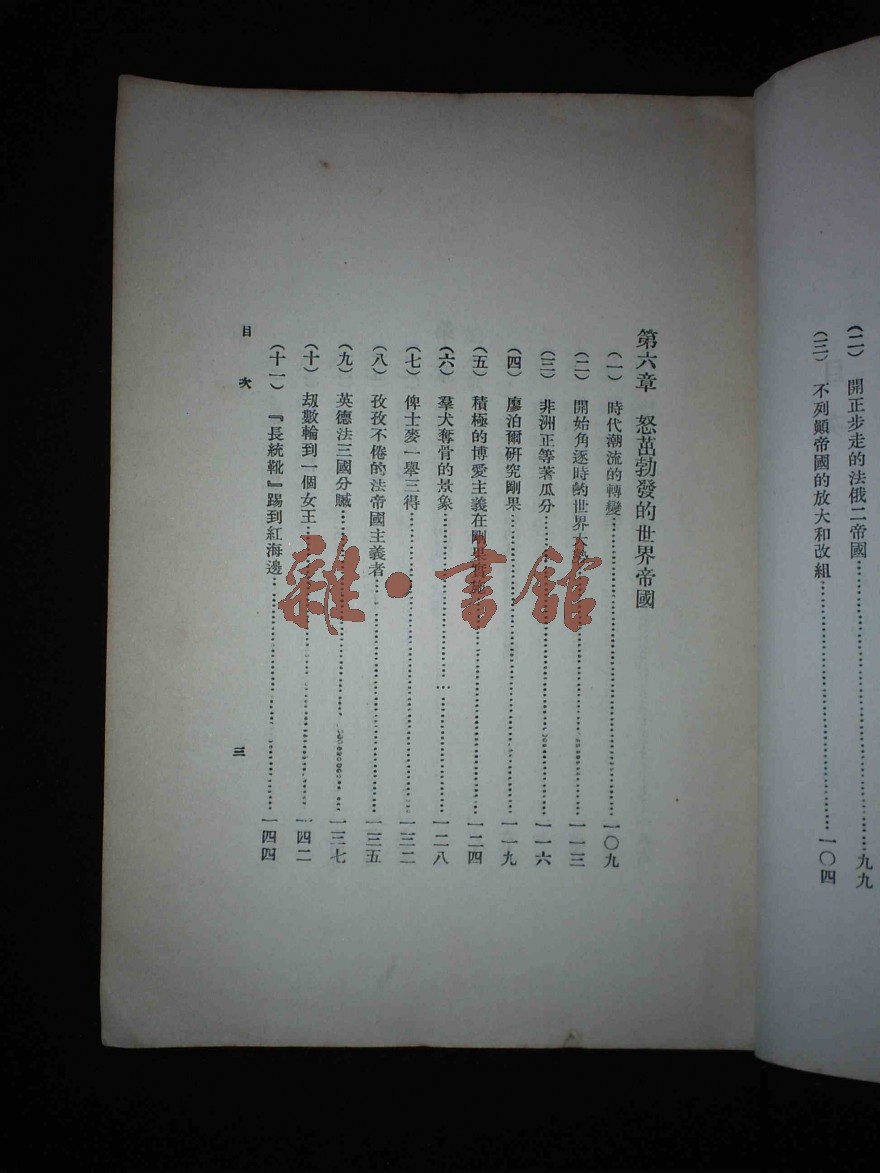 (二) 開正步走的法俄二帝國……九九
(三) 不列顛帝國的放大和改組……一〇四
第六章 怒茁勃發的世界帝國
(一) 時代潮流的轉變……一〇九
(二) 開始角逐時的世界大……一一三
(三) 非洲正等著瓜分……一一六
(四) 廖泊爾研究剛果……一一九
(五) 積極的博愛主義在剛果實施……一二四
(六) 羣犬奪骨的景象……一二八
(七) 俾士麥一舉三得……一三二
(八) 孜孜不倦的法帝國主義者……一三五
(九) 英德法三國分贓……一三七
(十) 刼數輪到一個女王……一四二
(十一) 『長統靴』踢到紅海邊……一四四
目次 三
雜·書館